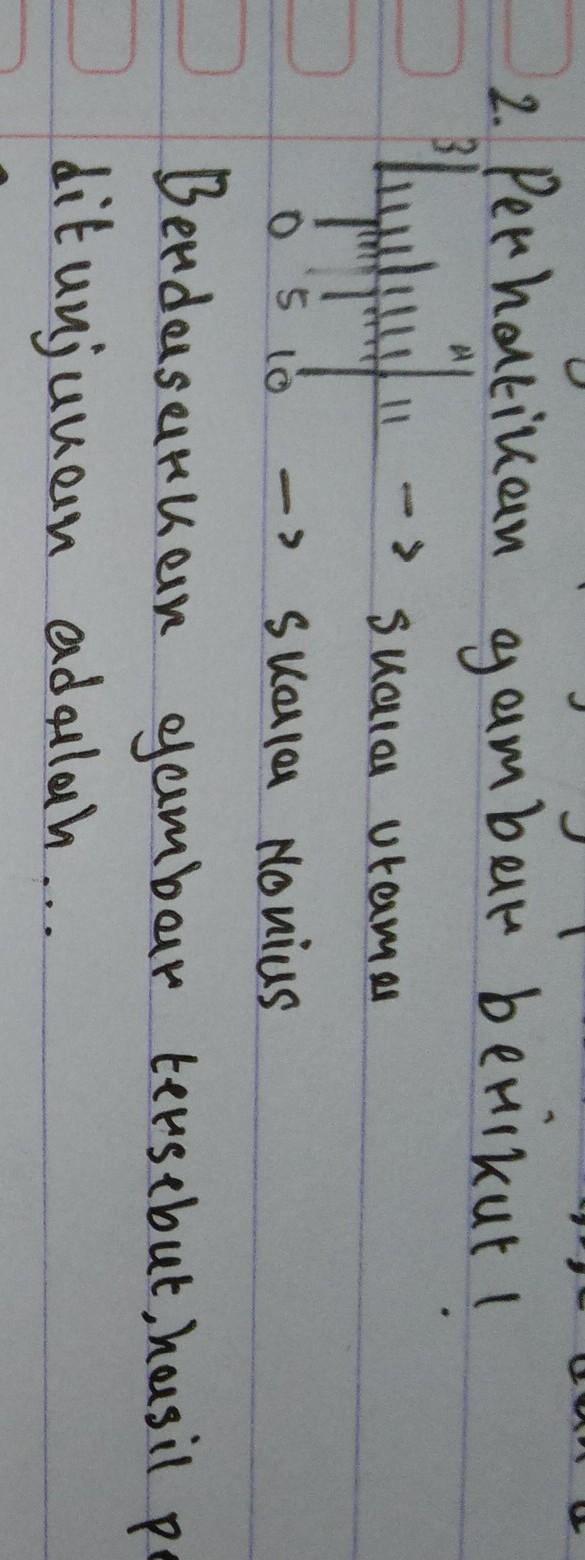 2. Perhatikan gambar berikut!
3 4
→ Skala Utama
0 5 10 → Skala Nonius
Berdasarkan gambar tersebut, hasil
ditunjukan adalah...